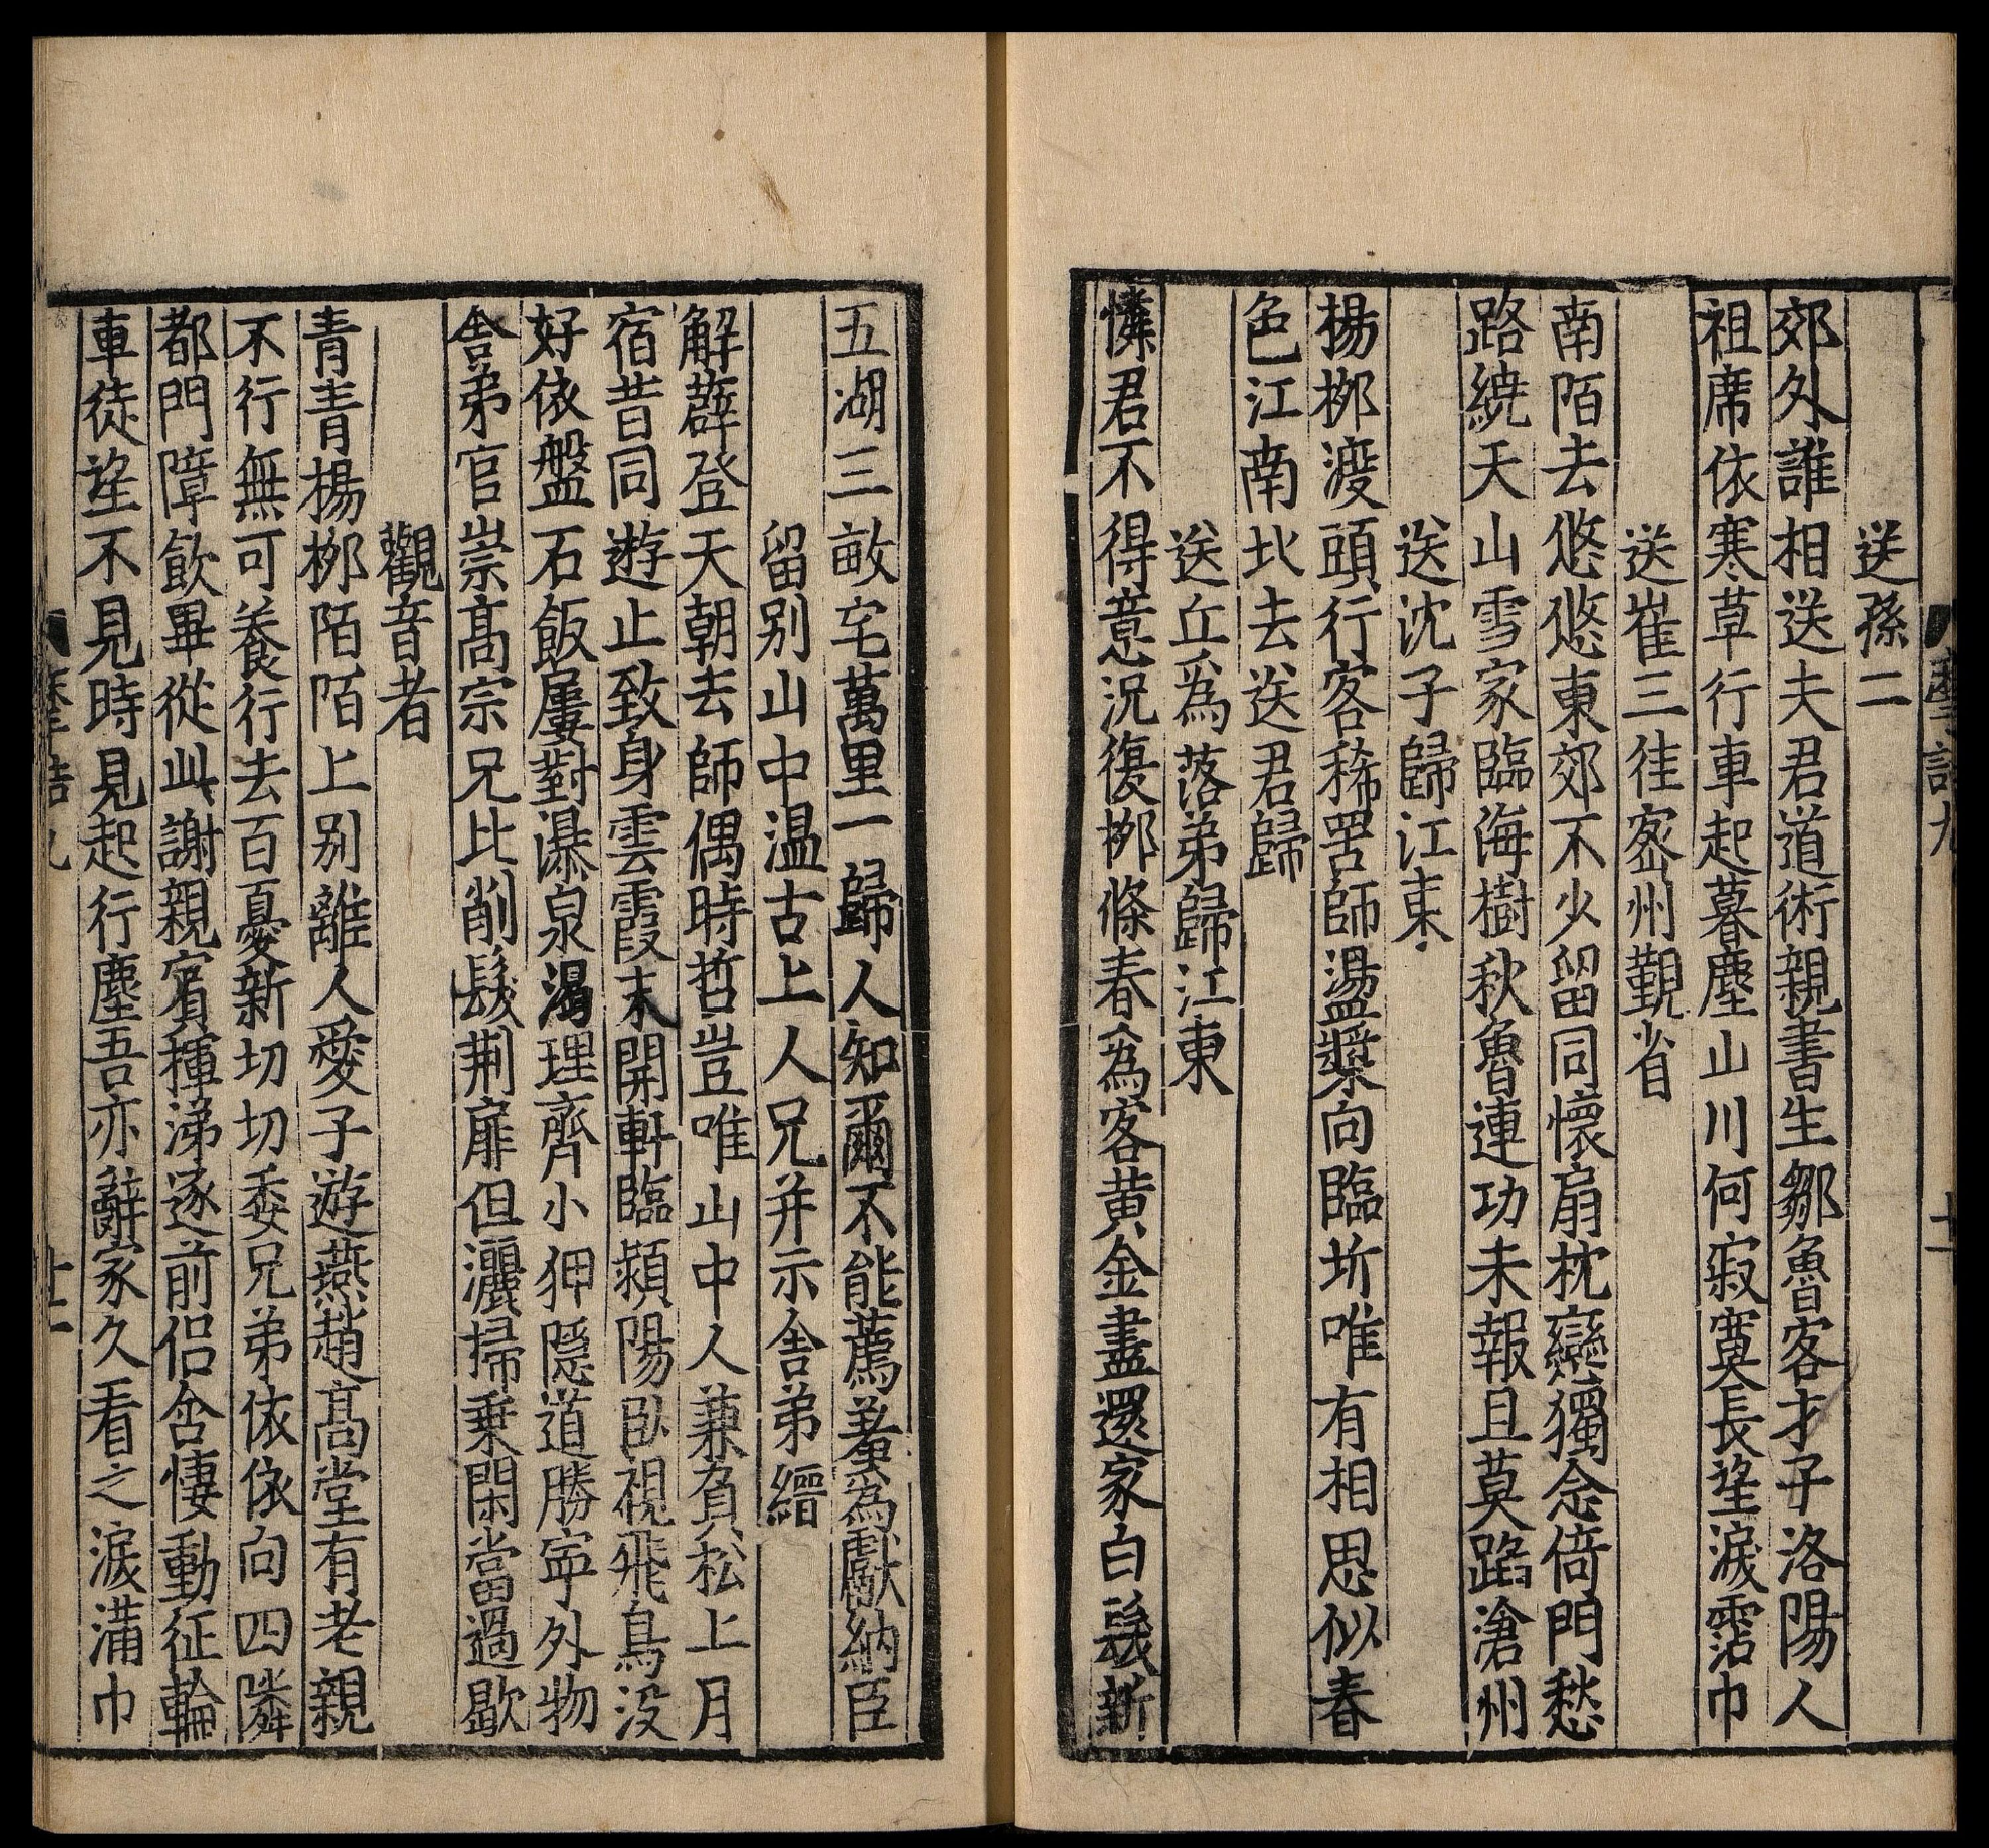 送孫二
郊外誰相送夫君道術親書生鄒魯客才子洛陽人
祖席依寒草行車起暮塵山川何寂寞長望淚霑巾
送崔三往密州覲省
南陌去悠悠東郊不少留同懷扇枕戀獨念倚門愁
路繞天山雪家臨海樹秋魯連功未報且莫蹈滄州
送沈子歸江東
楊柳渡頭行客稀罟師盪槳向臨圻唯有相思似春
色江南北去送君歸
送丘爲落弟歸江東
憐君不得意況復柳條春爲客黃金盡還家白髮新
五湖三畝宅萬里一歸人知爾不能薦羞爲獻納臣
留别山中温古上人兄并示舍弟縉
解薜登天朝去師偶時哲豈唯山中人兼負松上月
宿昔同遊止致身雲霞末開軒臨潁陽卧視飛鳥没
好依盤石飯屢對瀑泉渴理齊小狎隱道勝寧外物
舍弟官崇高宗兄比削髮荆扉但灑掃乗閑當過歇
觀音者
青青楊柳陌陌上别離人愛子遊燕趙高堂有老親
不行無可養行去百憂新切切委兄弟依依向四隣
都門障飲畢從此謝親賓揮涕逐前侣含悽動征輪
車徒望不見時見起行塵吾亦辭家久看之淚滿巾